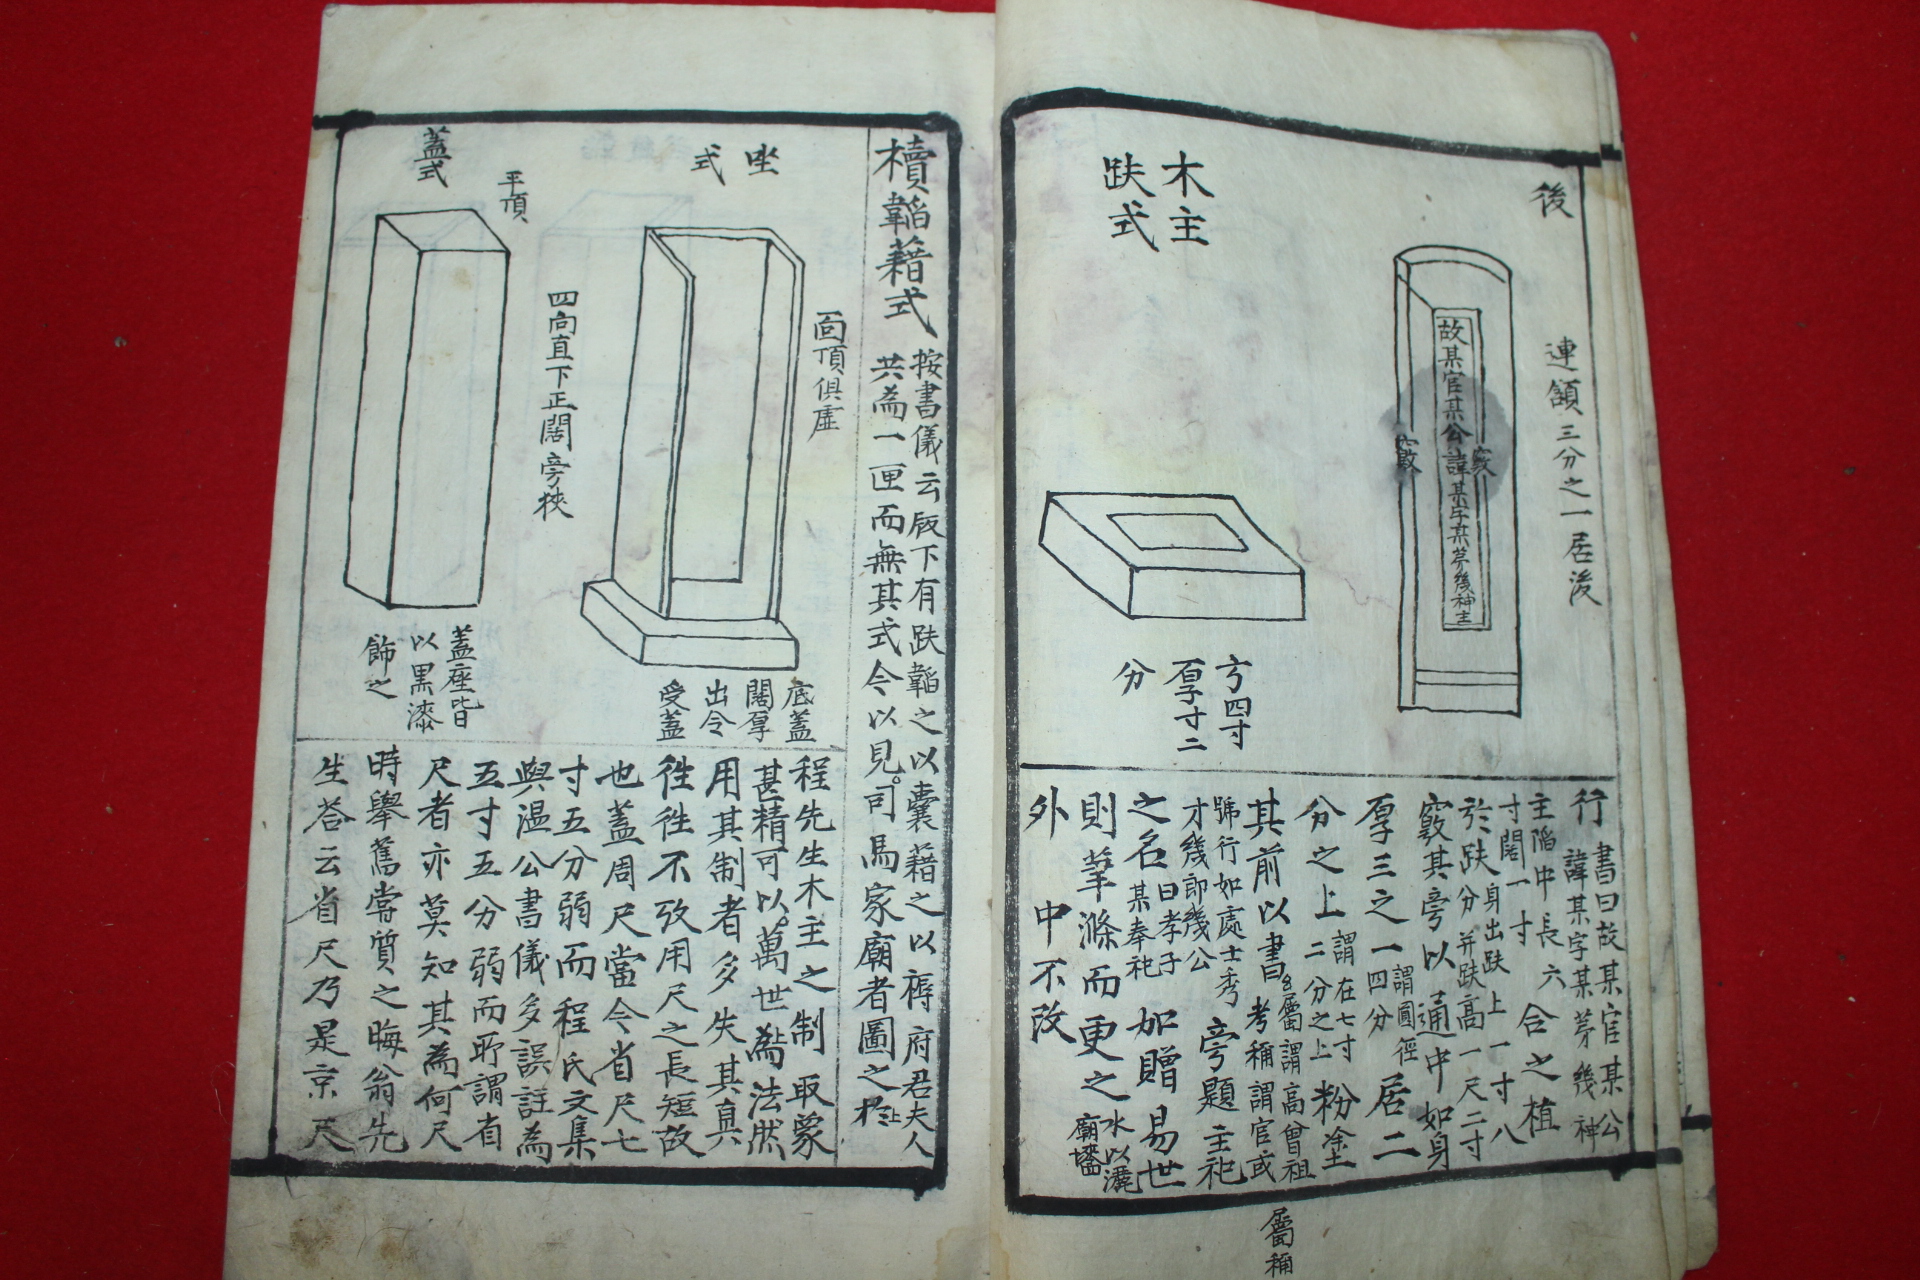 後
連領三分之一居後
故某官某公諱某字某第幾神主
竅
竅
木主
趺式
方四寸
厚寸二
分
行
書曰故某官某公
諱某字某第幾神
主陷中長六
寸闊一寸
合之植
於趺
身出趺上一寸八
分并趺高一尺二寸
竅其旁以通中如身
厚三之一
謂圓徑
四分
居二
分之上
謂在七寸
二分之上
粉塗
其前以書
屬謂高曾祖
考稱謂官或
號行如處士秀
才幾郎幾公
旁題主祀
之名
曰孝子
某奉祀
加贈易世
則筆滌而更之
水以灑
廟墻
外中不改
屬稱
櫝韜藉式
按書儀云版下有趺韜之以囊藉之以褥府君夫人
共為一匣而無其式今以見司馬家廟者圖之於上
坐
式
面頂俱虛
底蓋
闊厚
出令
受蓋
蓋式
平頂
四向直下正闊旁狹
蓋座皆
以黑漆
飾之
程先生木主之制取象
甚精可以萬世為法然
用其制者多失其真
往往不攷用尺之長短故
也蓋周尺當今省尺七
寸五分弱而程氏文集
與溫公書儀多誤註為
五寸五分弱而所謂省
尺者亦莫知其為何尺
時舉舊嘗質之晦翁先
生答云省尺乃是京尺